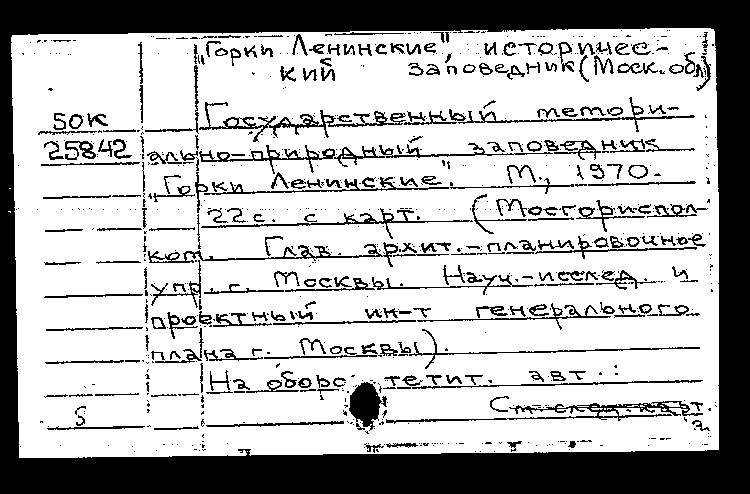 „Горки Ленинские", историчес-
кий заповедник (Моск. обл)
50К Государственный мемори-
25842 ально-природный заповедник
„Горки Ленинские". М., 1970.
22 с. с карт. (Мосгориспол-
ком. Глав. архит.-планировочное
упр. г. Москвы. Науч.-исслед. и
проектный ин-т генерального
плана г. Москвы).
На оборо тетит. авт.:
S См след. карт.